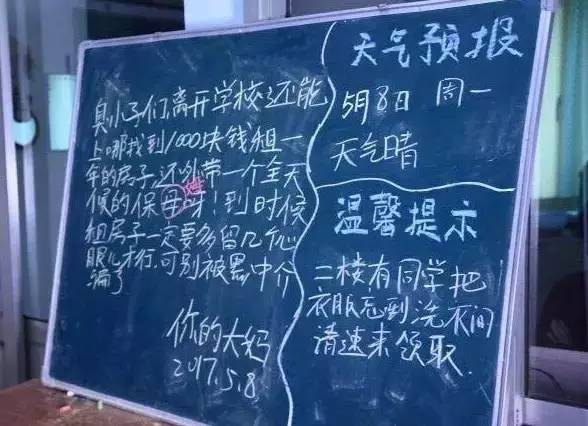 臭小子们,离开学校还能
上哪找到1000块钱租一
年的房子,还外带一个全天
姆
候的保母呀!到时候
租房子一定要多留几个心
眼儿才行,可别被黑中介
骗了
你的大妈
2017.5.8
天气预报
5月8日 周一
天气晴
温馨提示
二楼有同学把
衣服忘到洗衣间
请速来领取.